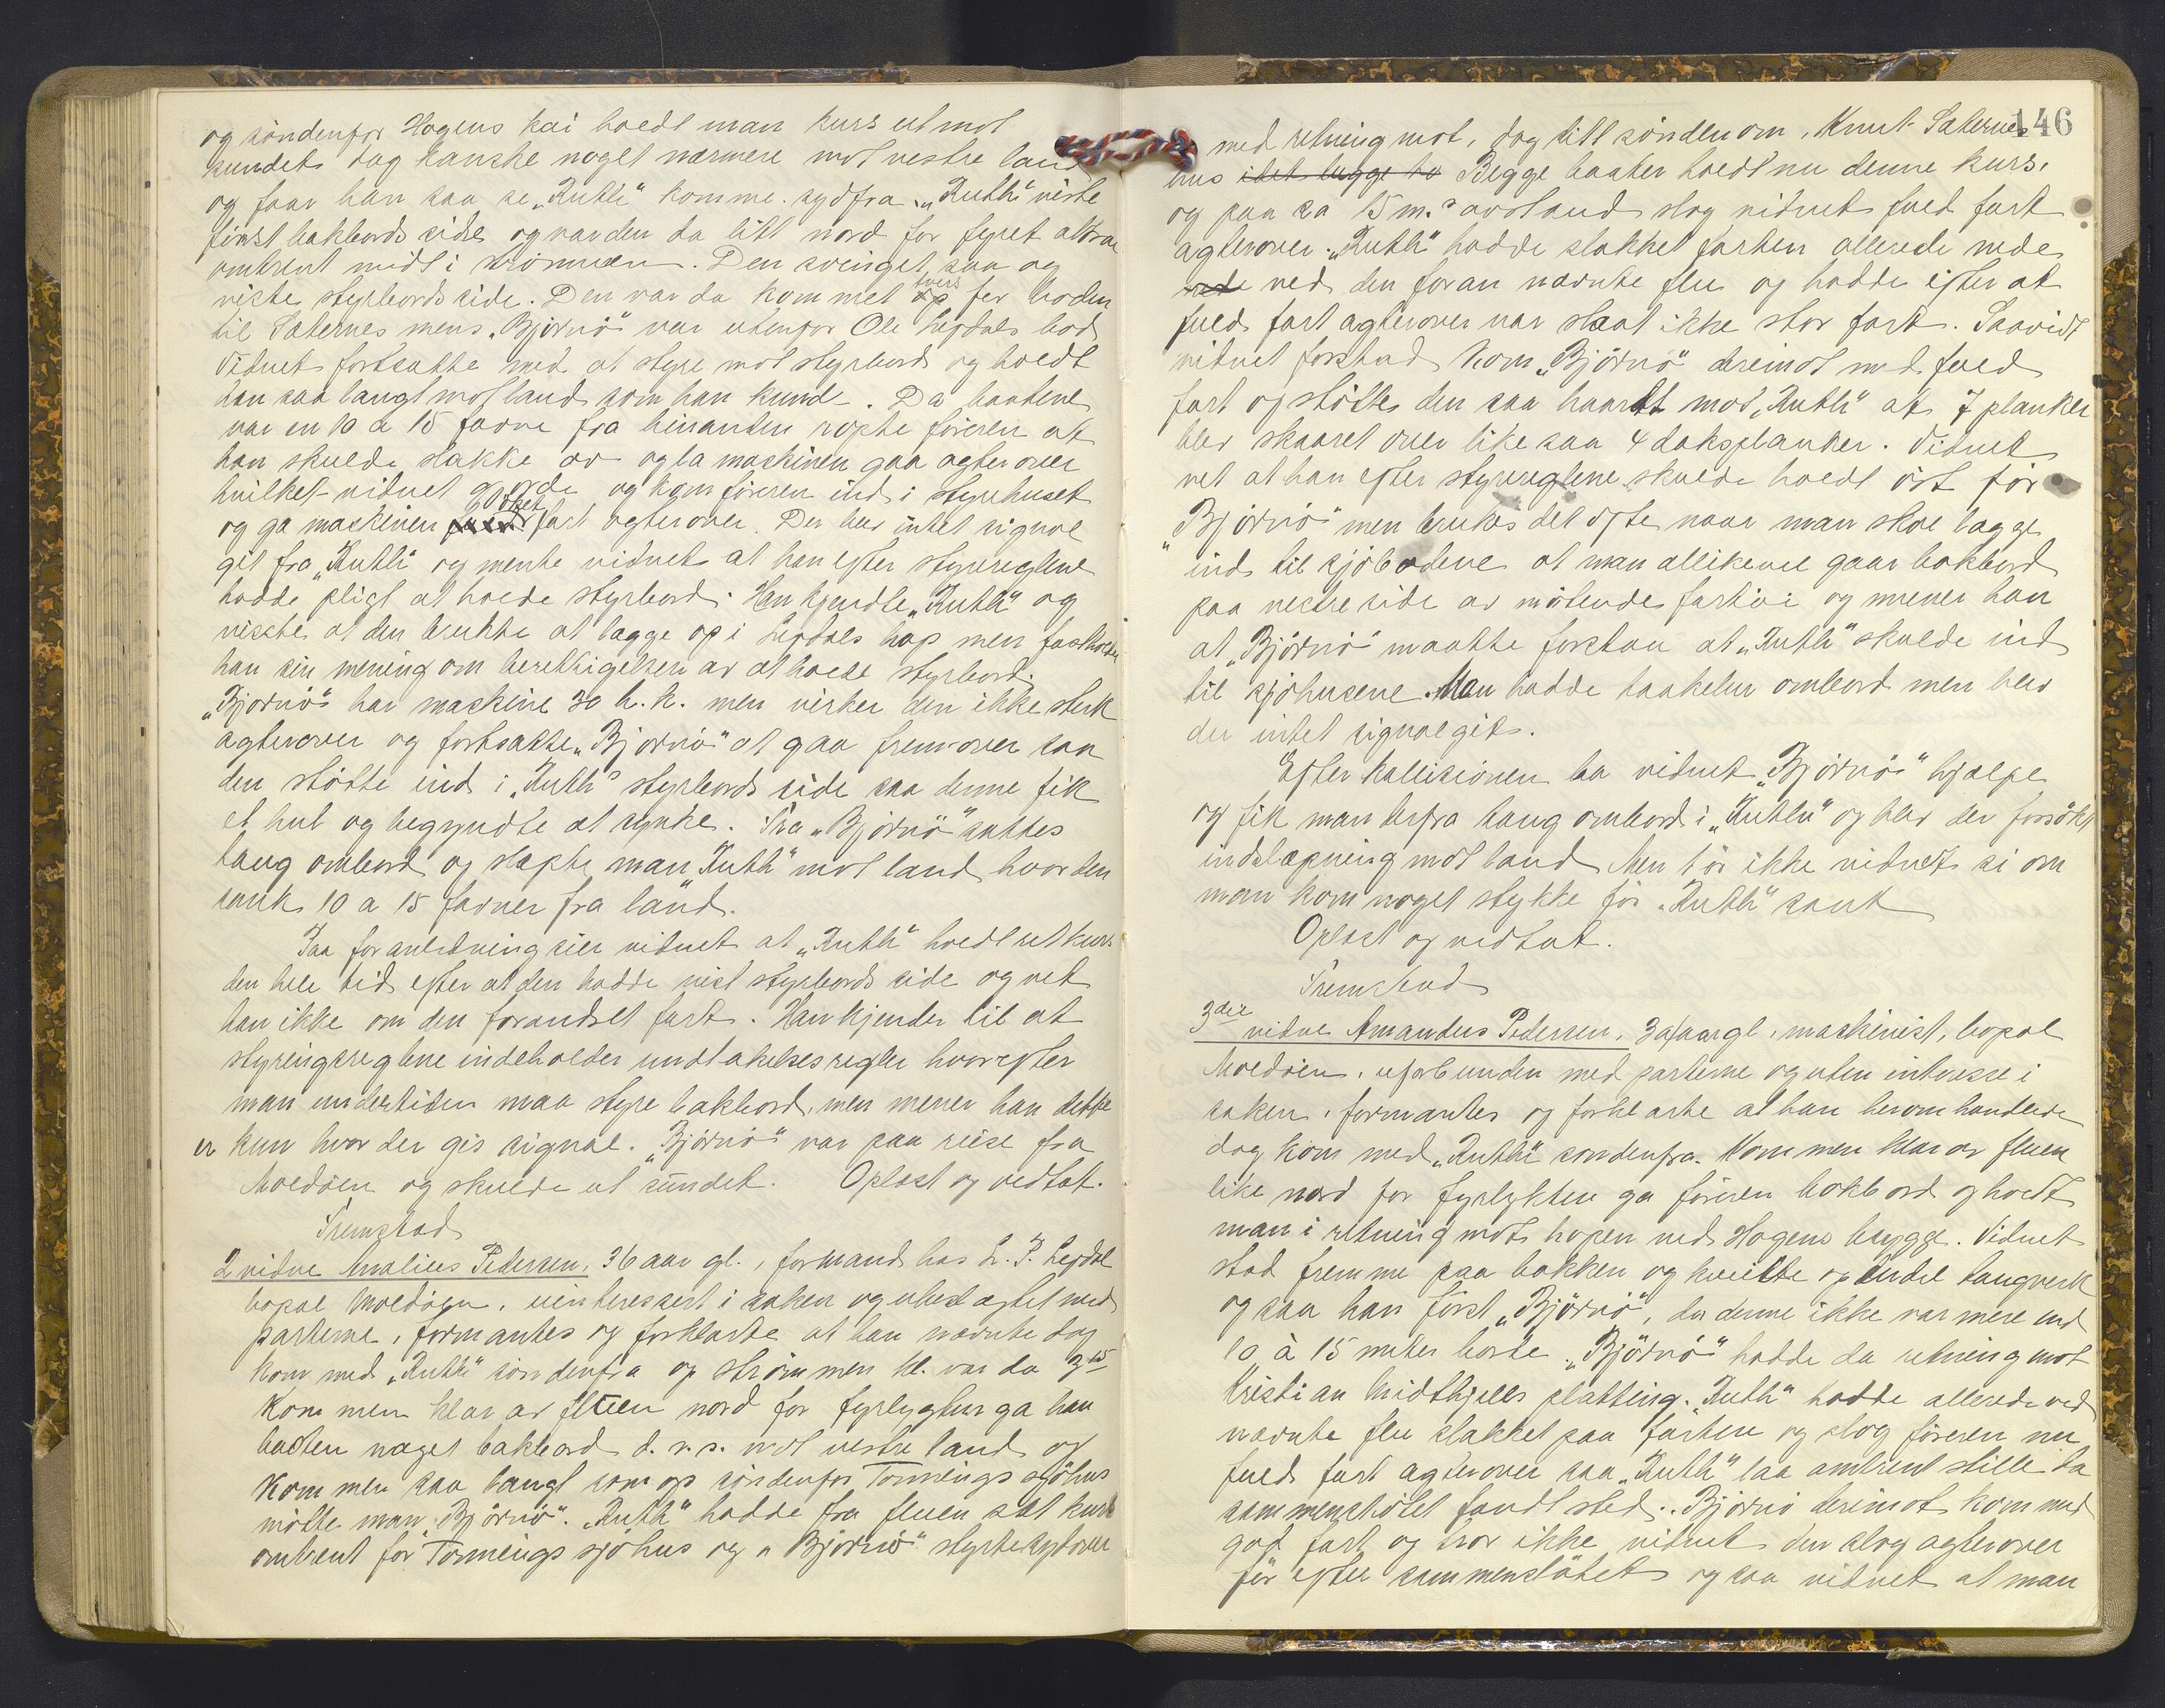 og søndenfor Hogens kai holdt man kurs ut mot
sundet dog kanske noget nærmere mot vestre land
og faar han saa se „Ruth" komme sydfra. „Ruth" viste
først bakbords side og var den da litt nord for fyret altsaa
omtrent midt i strømmen. Den svinget saa og
viste styrbords side. Den var da kommet tvers for boden
til Sæternes mens „Bjørnö" var utenfor Ole Lepdals bod
Vidnet fortsatte med at styre mot styrbord og holdt
han saa langt mot land som han kunde. Da baatene
var en 10 a 15 favne fra hinanden ropte føreren at
han skulde slakke av og la maskinen gaa agterover
hvilket vidnet gjorde og kom føreren ind i styrehuset
og ga maskinen øket fart agterover. Der blev intet signal
git fra „Ruth" og mente vidnet at han efter styrereglene
hadde pligt at holde styrbord. Han kjendte „Ruth" og
visste at den brukte at lægge op i Lepdals hop men fastholder
han sin mening om berettigelsen av at holde styrbord.
„Bjørnö" har maskine 30 h.k. men virker den ikke sterk
agterover og fortsatte „Bjørnö" at gaa fremover saa
den støtte ind i „Ruth" styrbords side saa denne fik
et hul og begyndte at synke. Fra „Bjørnö" sattes
taug ombord og slæpte man „Ruth" mot land hvor den
sank 10 a 15 favner fra land.
Paa foranledning sier vidnet at „Ruth" holdt ret kurs
den hele tid efter at den hadde vist styrbords side og vet
han ikke om den forandret fart. Han kjender til at
styringsreglene indeholder undtakelsesregler hvorefter
man undertiden maa styre bakbord, men mener han dette
er kun hvor der gis signal. „Bjørnö" var paa reise fra
Moldöen og skulde ut sundet. Oplæst og vedtat.
Fremstod
2 vidne Analius Pedersen, 36 aar gl., formand hos L. P. Lepdal
bopæl Moldöen, uinteressert i saken og ubeslægtet med
parterne, formantes og forklarte at han nævnte dag
kom med „Ruth" søndenfra op strømmen kl. var da
Kommen klar av fluen nord for fyrlygten ga han
baaten noget bakbord d. v. s. mot vestre land og
kommen saa langt som op søndenfor Tonnings sjöhus
mötte man „Bjørnö". „Ruth" hadde fra fluen sat kurs
omtrent for Tonnings sjöhus og „Bjørnö" styrte sydover
146
med retning mot, dog litt sønden om, Knut Sæternes
hus idet begge to Begge baater holdt nu denne kurs,
og paa ca 15 m.s avstand slog vidnet fuld fart
agterover. „Ruth" hadde slakket farten allerede nede
nede ved den foran nævnte flu og hadde efter at
fuld fart agterover var slaat ikke stor fart. Saavidt
vidnet forstod kom „Bjørnö" derimot med fuld
fart og støtte den saa haardt mot „Ruth" at 7 planker
blev skaaret over like saa 4 dæksplanker. Vidnet
vet at han efter styrereglene skulde holdt öst for
„Bjørnö" men brukes det ofte naar man skal lægge
ind til sjöbodene at man allikevel gaar bakbord
paa vestre side av mötende fartöi og mener han
at „Bjørnö" maatte forstaa at „Ruth" skulde ind
til sjöhusene. Man hadde taakelur ombord men blev
der intet signal git.
Efter kollisionen ba vidnet „Bjørnö" hjælpe
og fik man derfra taug ombord i „Ruth" og blev der forsökt
indslæpning mot land Men tör ikke vidnet si om
man kom noget stykke för „Ruth" sank
Oplæst og vedtat.
Fremstod
3die vidne Amandus Pedersen, 32 aar gl, maskinist, bopæl
Moldöen, uforbunden med parterne og uten interesse i
saken, formantes og forklarte at han heromhandlede
dag kom med „Ruth" søndenfra. Kommen klar av fluen
like nord for fyrlykten ga föreren bakbord og holdt
man i retning mot hopen ved Hogens brygge. Vidnet
stod fremme paa bakken og kveilte op endel taugverk
og saa han först „Bjørnö", da denne ikke var mere end
10 à 15 meter borte. „Bjørnö" hadde da retning mot
Kristian Midthjells platting. „Ruth" hadde allerede ved
nævnte flu slakket paa farten og slog föreren nu
fuld fart agterover saa „Ruth" laa omtrent stille da
sammenstötet fandt sted. Bjørnö derimot kom med
god fart og tror ikke vidnet den slog agterover
för efter sammenstötet og saa vidnet at man